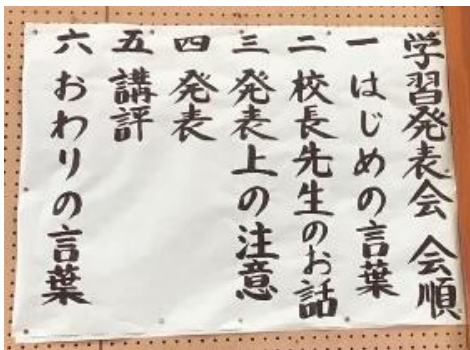 学習発表会 会順
一 はじめの言葉
二 校長先生のお話
三 発表上の注意
四 発表
五 講評
六 おわりの言葉